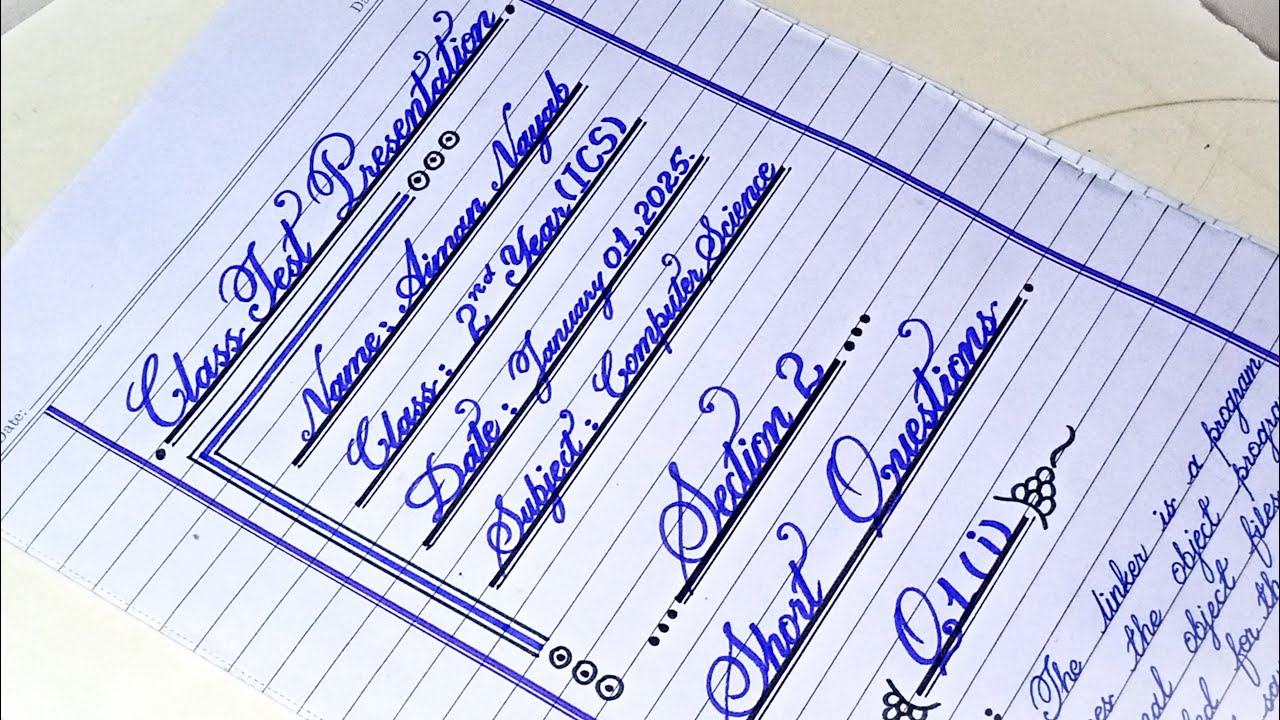 Date:
Class Test Presentation
Name: Aiman Nayab
Class: 2nd Year (ICS)
Date: January 01, 2025.
Subject: Computer Science
Section 2
Short Questions
Q1 (i)
The linker is a program
the object progra
object files
for th